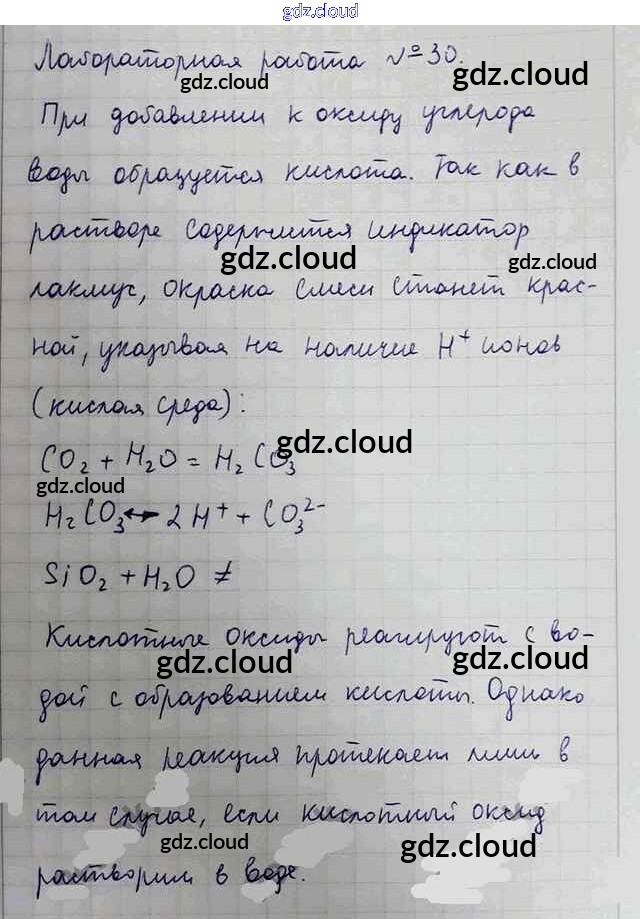 gdz.cloud
Лабораторная работа №30.
gdz.cloud
gdz.cloud
При добавлении к оксиду углерода
воды образуется кислота. Так как в
растворе содержится индикатор
gdz.cloud
gdz.cloud
лакмус, окраска смеси станет крас-
ной, указывая на наличие H⁺ ионов
(кислая среда):
gdz.cloud
CO₂ + H₂O = H₂CO₃
gdz.cloud
H₂CO₃ ↔ 2H⁺ + CO₃²⁻
SiO₂ + H₂O ≠
Кислотные оксиды реагируют с во-
gdz.cloud
gdz.cloud
дой с образованием кислоты. Однако
данная реакция протекает лишь в
том случае, если кислотный оксид
gdz.cloud
gdz.cloud
растворим в воде.